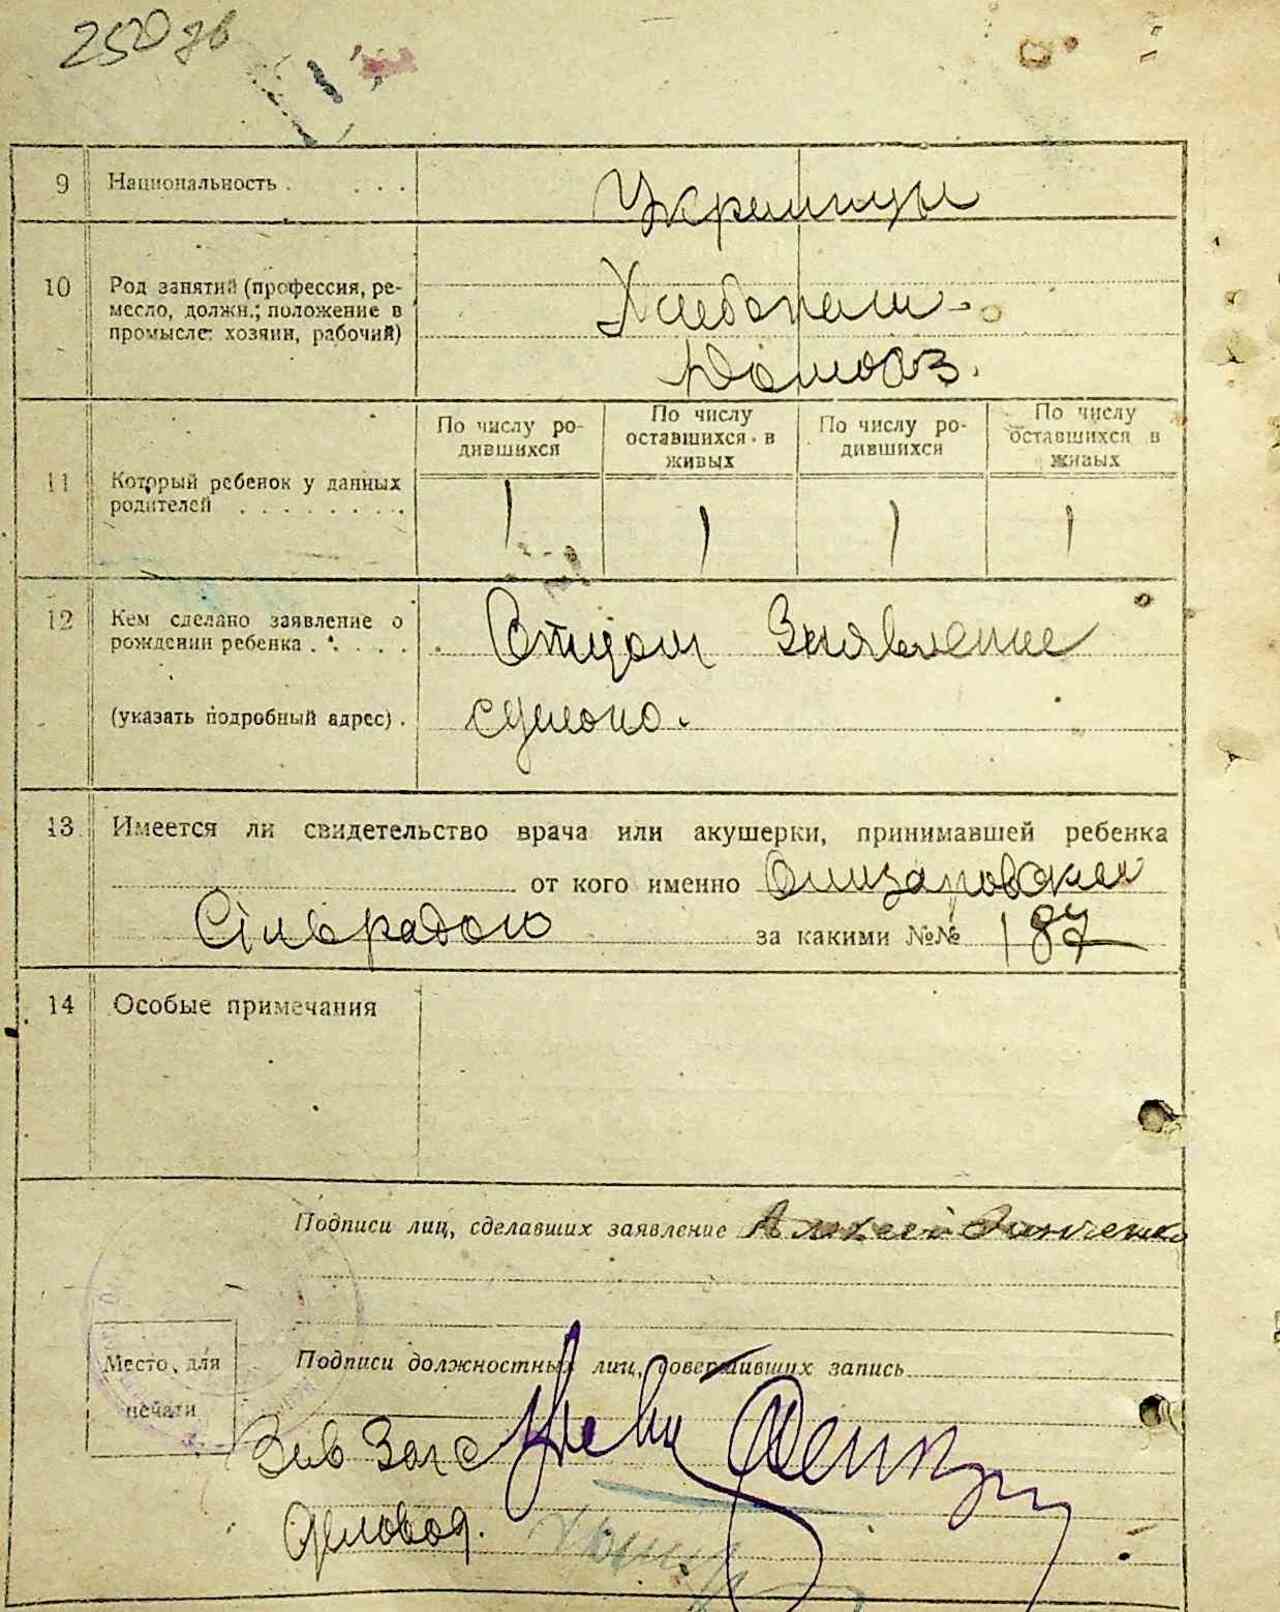 250 зв
9 Национальность . . . .
Украинцы
10 Род занятий (профессия, ре-
месло, должн.; положение в
промысле: хозяин, рабочий)
Хлебопаш-
Домохоз.
По числу ро-
дившихся
По числу
оставшихся в
живых
По числу ро-
дившихся
По числу
оставшихся в
живых
11 Который ребенок у данных
родителей . . . . . . . .
1 1 1 1
12 Кем сделано заявление о
рождении ребенка . . . . .
(указать подробный адрес) .
Отцом Заявление
сделано.
13 Имеется ли свидетельство врача или акушерки, принимавшей ребенка
от кого именно Олизаровская
Сільрадою за какими №№ 187
14 Особые примечания
Подписи лиц, сделавших заявление Алексей Зинченко
Место для
печати
Подписи должностных лиц, совершивших запись
Зав Загс
Деловод.